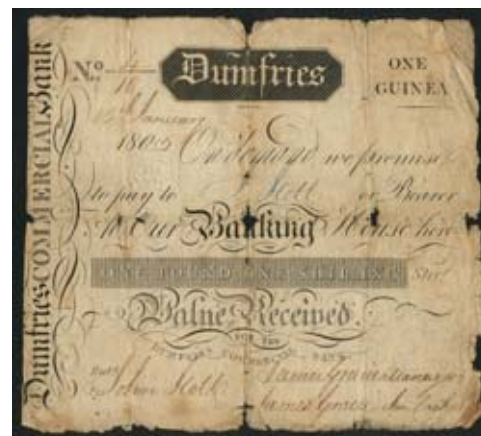 Dumfries COMMERCIAL Bank
No.
Dumfries
ONE
GUINEA
January
180 On demand we promise
to pay to or Bearer
At Our Banking House here
ONE POUND ONE SHILLING Ster
Value Received.
FOR THE
DUMFRIES COMMERCIAL BANK
James Gracie Manager
James Gracie